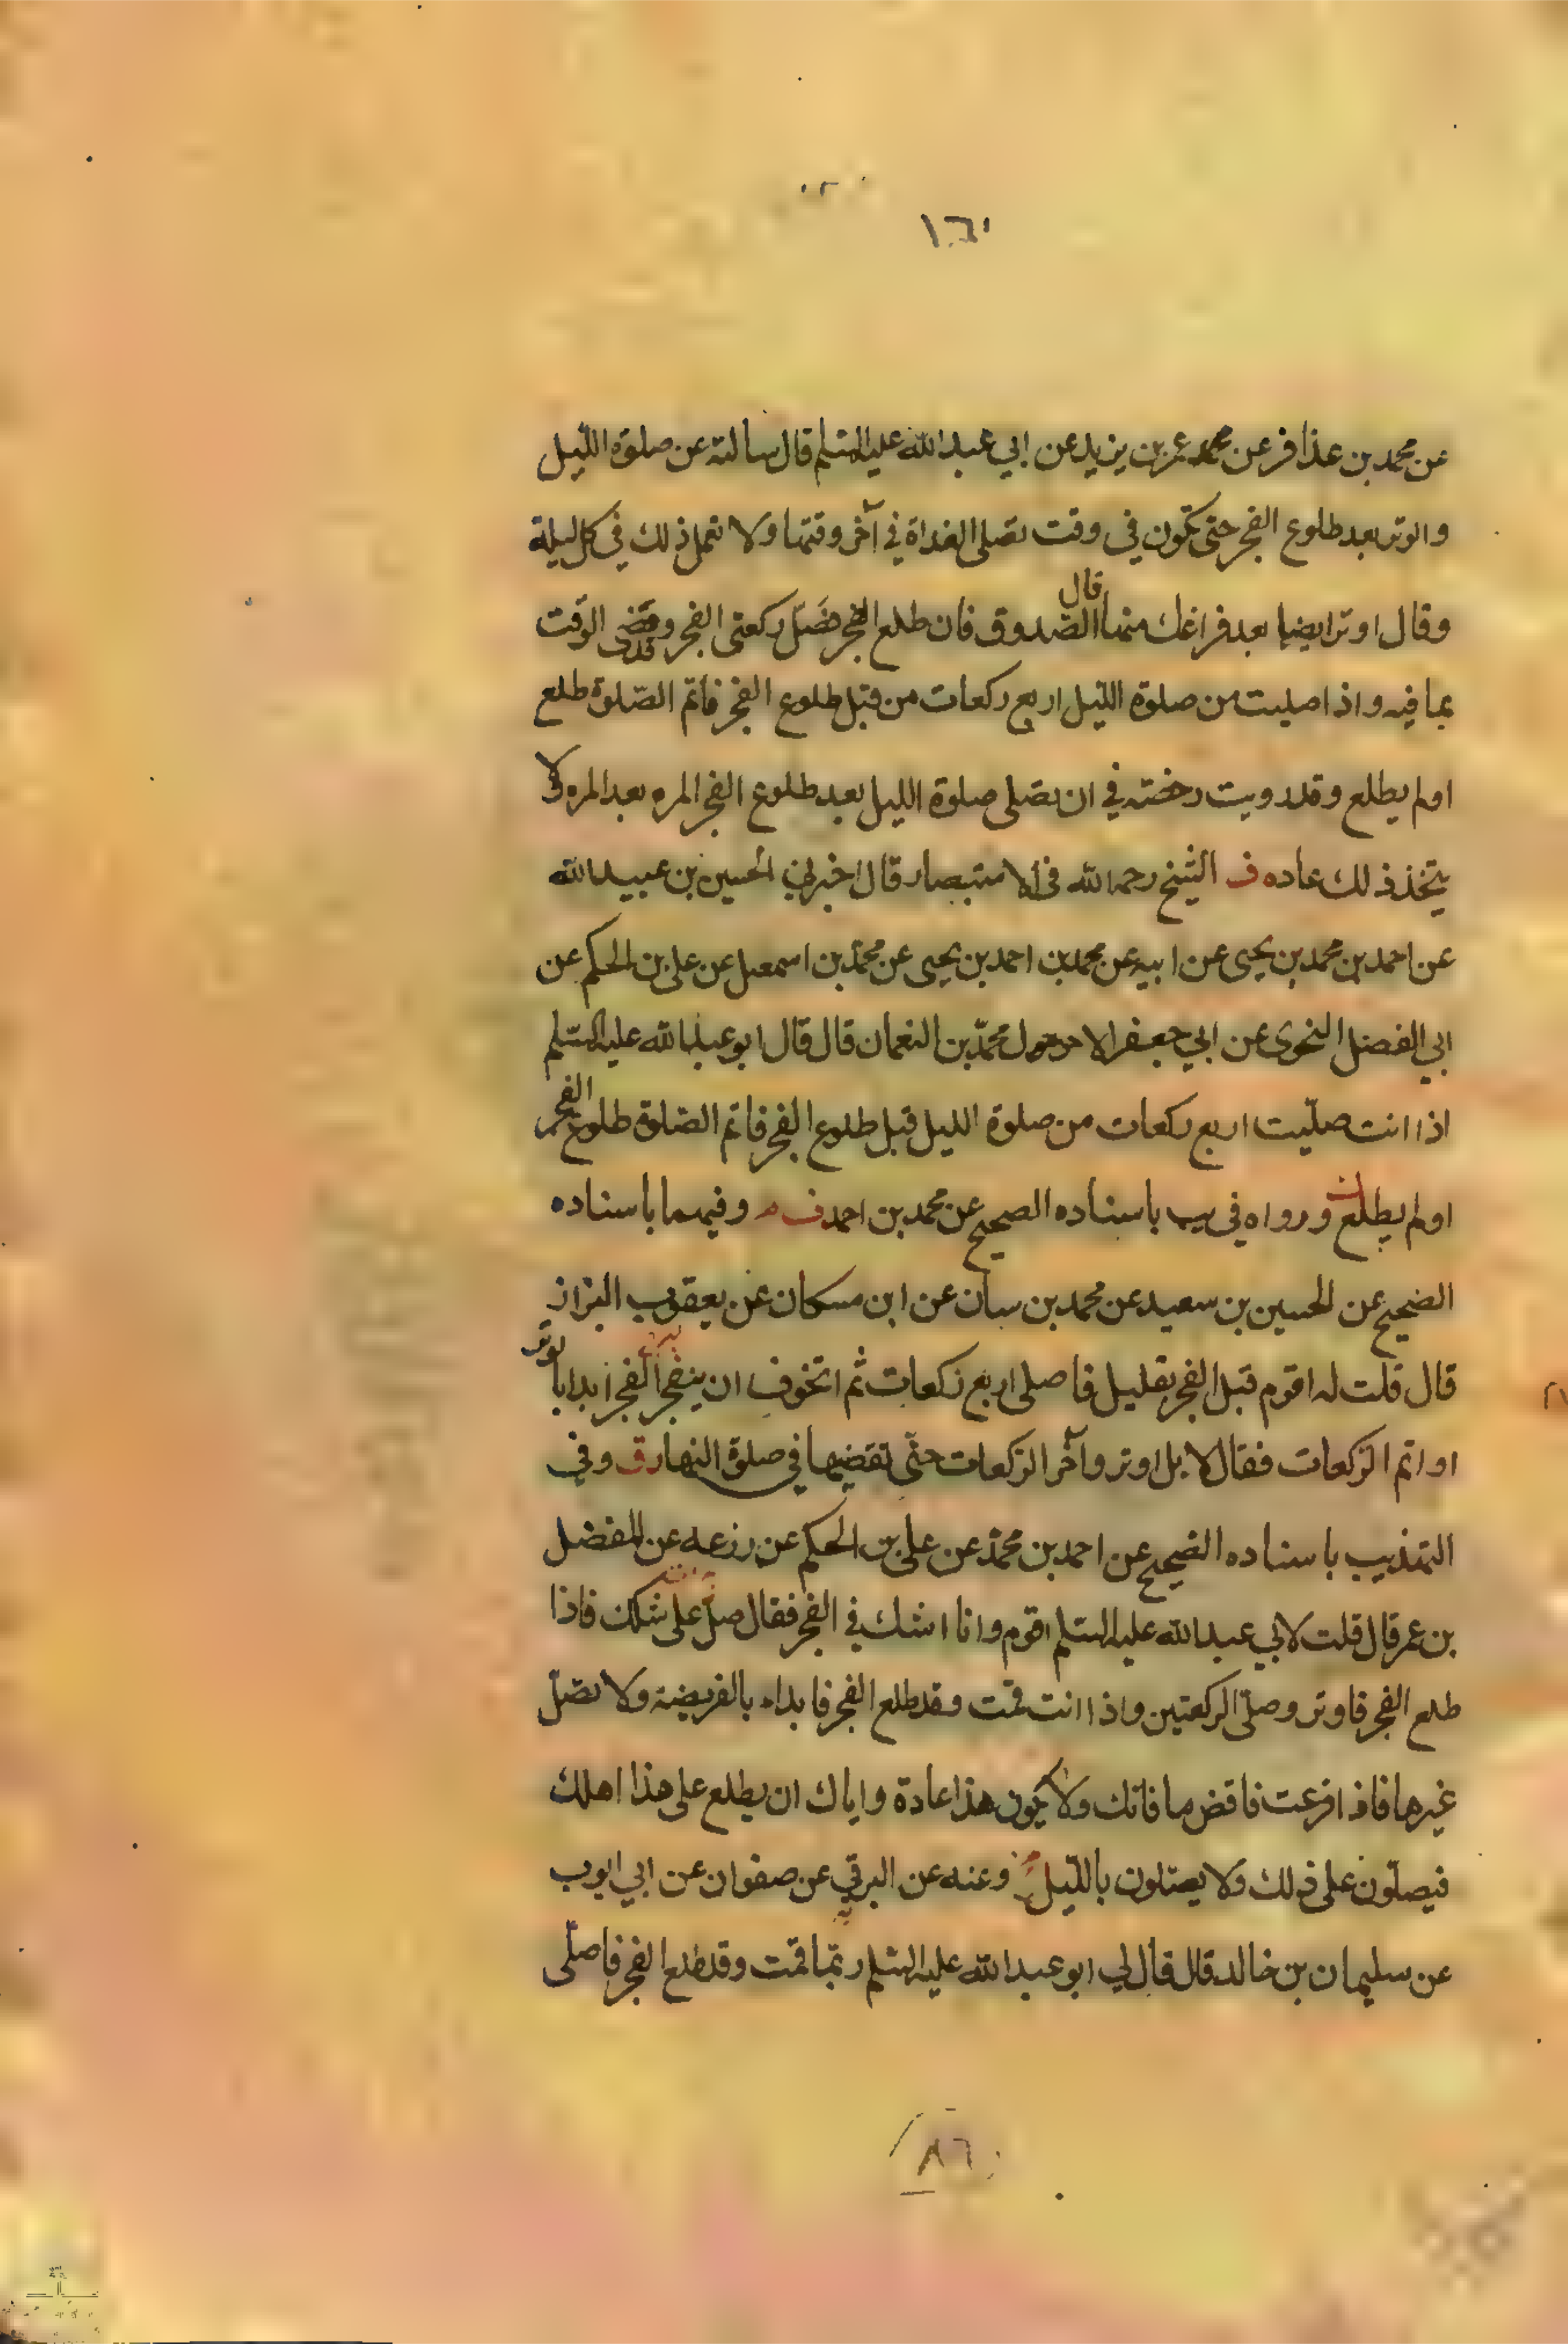 عن محمد بن عذافر عن محمد عمر بن يزيد عن ابي عبدالله عليه السلم قال سالته عن صلوة الليل
والوتر بعد طلوع الفجر حتى تكون في وقت تصلى الغداة في آخر وقتها ولا تعمل ذلك في كل ليلة
وقال اوتر ايضا بعد فراغك منها قال الصدوق فان طلع الفجر فصل ركعتى الفجر وقد مضى الوقت
بما فيه واذا صليت من صلوة الليل اربع ركعات من قبل طلوع الفجر فاتم الصلوة طلع
اولم يطلع وقد رويت رخصته في ان يصلى صلوة الليل بعد طلوع الفجر المره بعد المره ولا
يتخذ ذلك عاده ف الشيخ رحمه الله في الاستبصار قال اخبرني الحسين بن عبيدالله
عن احمد بن محمد بن يحيى عن ابيه عن محمد بن احمد بن يحيى عن محمد بن اسمعيل عن على بن الحكم عن
ابي الفضل النحوى عن ابي جعفر الاحول محمد بن النعمان قال قال ابو عبدالله عليه السلم
اذا انت صليت اربع ركعات من صلوة الليل قبل طلوع الفجر فاتم الصلوة طلوع الفجر
اولم يطلع ورواه في يب باسناده الصحيح عن محمد بن احمد ف وفيهما باسناده
الصحيح عن الحسين بن سعيد عن محمد بن سنان عن ابن مسكان عن يعقوب البزاز
قال قلت له اقوم قبل الفجر بقليل فاصلى اربع ركعات ثم اتخوف ان ينفجر الفجر ابدا بالوتر
او اتم الركعات فقال لا بل اوتر وآخر الركعات حتى تقضيها في صلوة النهار ق وفي
التهذيب باسناده الصحيح عن احمد بن محمد عن على بن الحكم عن زرعه عن المفضل
بن عمر قال قلت لابي عبدالله عليه السلم اقوم وانا اشك في الفجر فقال صل على شكك فاذا
طلع الفجر فاوتر وصلى الركعتين واذا انت قمت وقد طلع الفجر فابداء بالفريضة ولا تصل
غيرها فاذا فرغت فاقض ما فاتك ولا يكون هذا عادة واياك ان يطلع على هذا اهلك
فيصلون على ذلك ولا يصلون بالليل وعنه عن البرقي عن صفوان عن ابي ايوب
عن سليمان بن خالد قال قال لي ابو عبدالله عليه السلم ربما قمت وقد طلع الفجر فاصلى